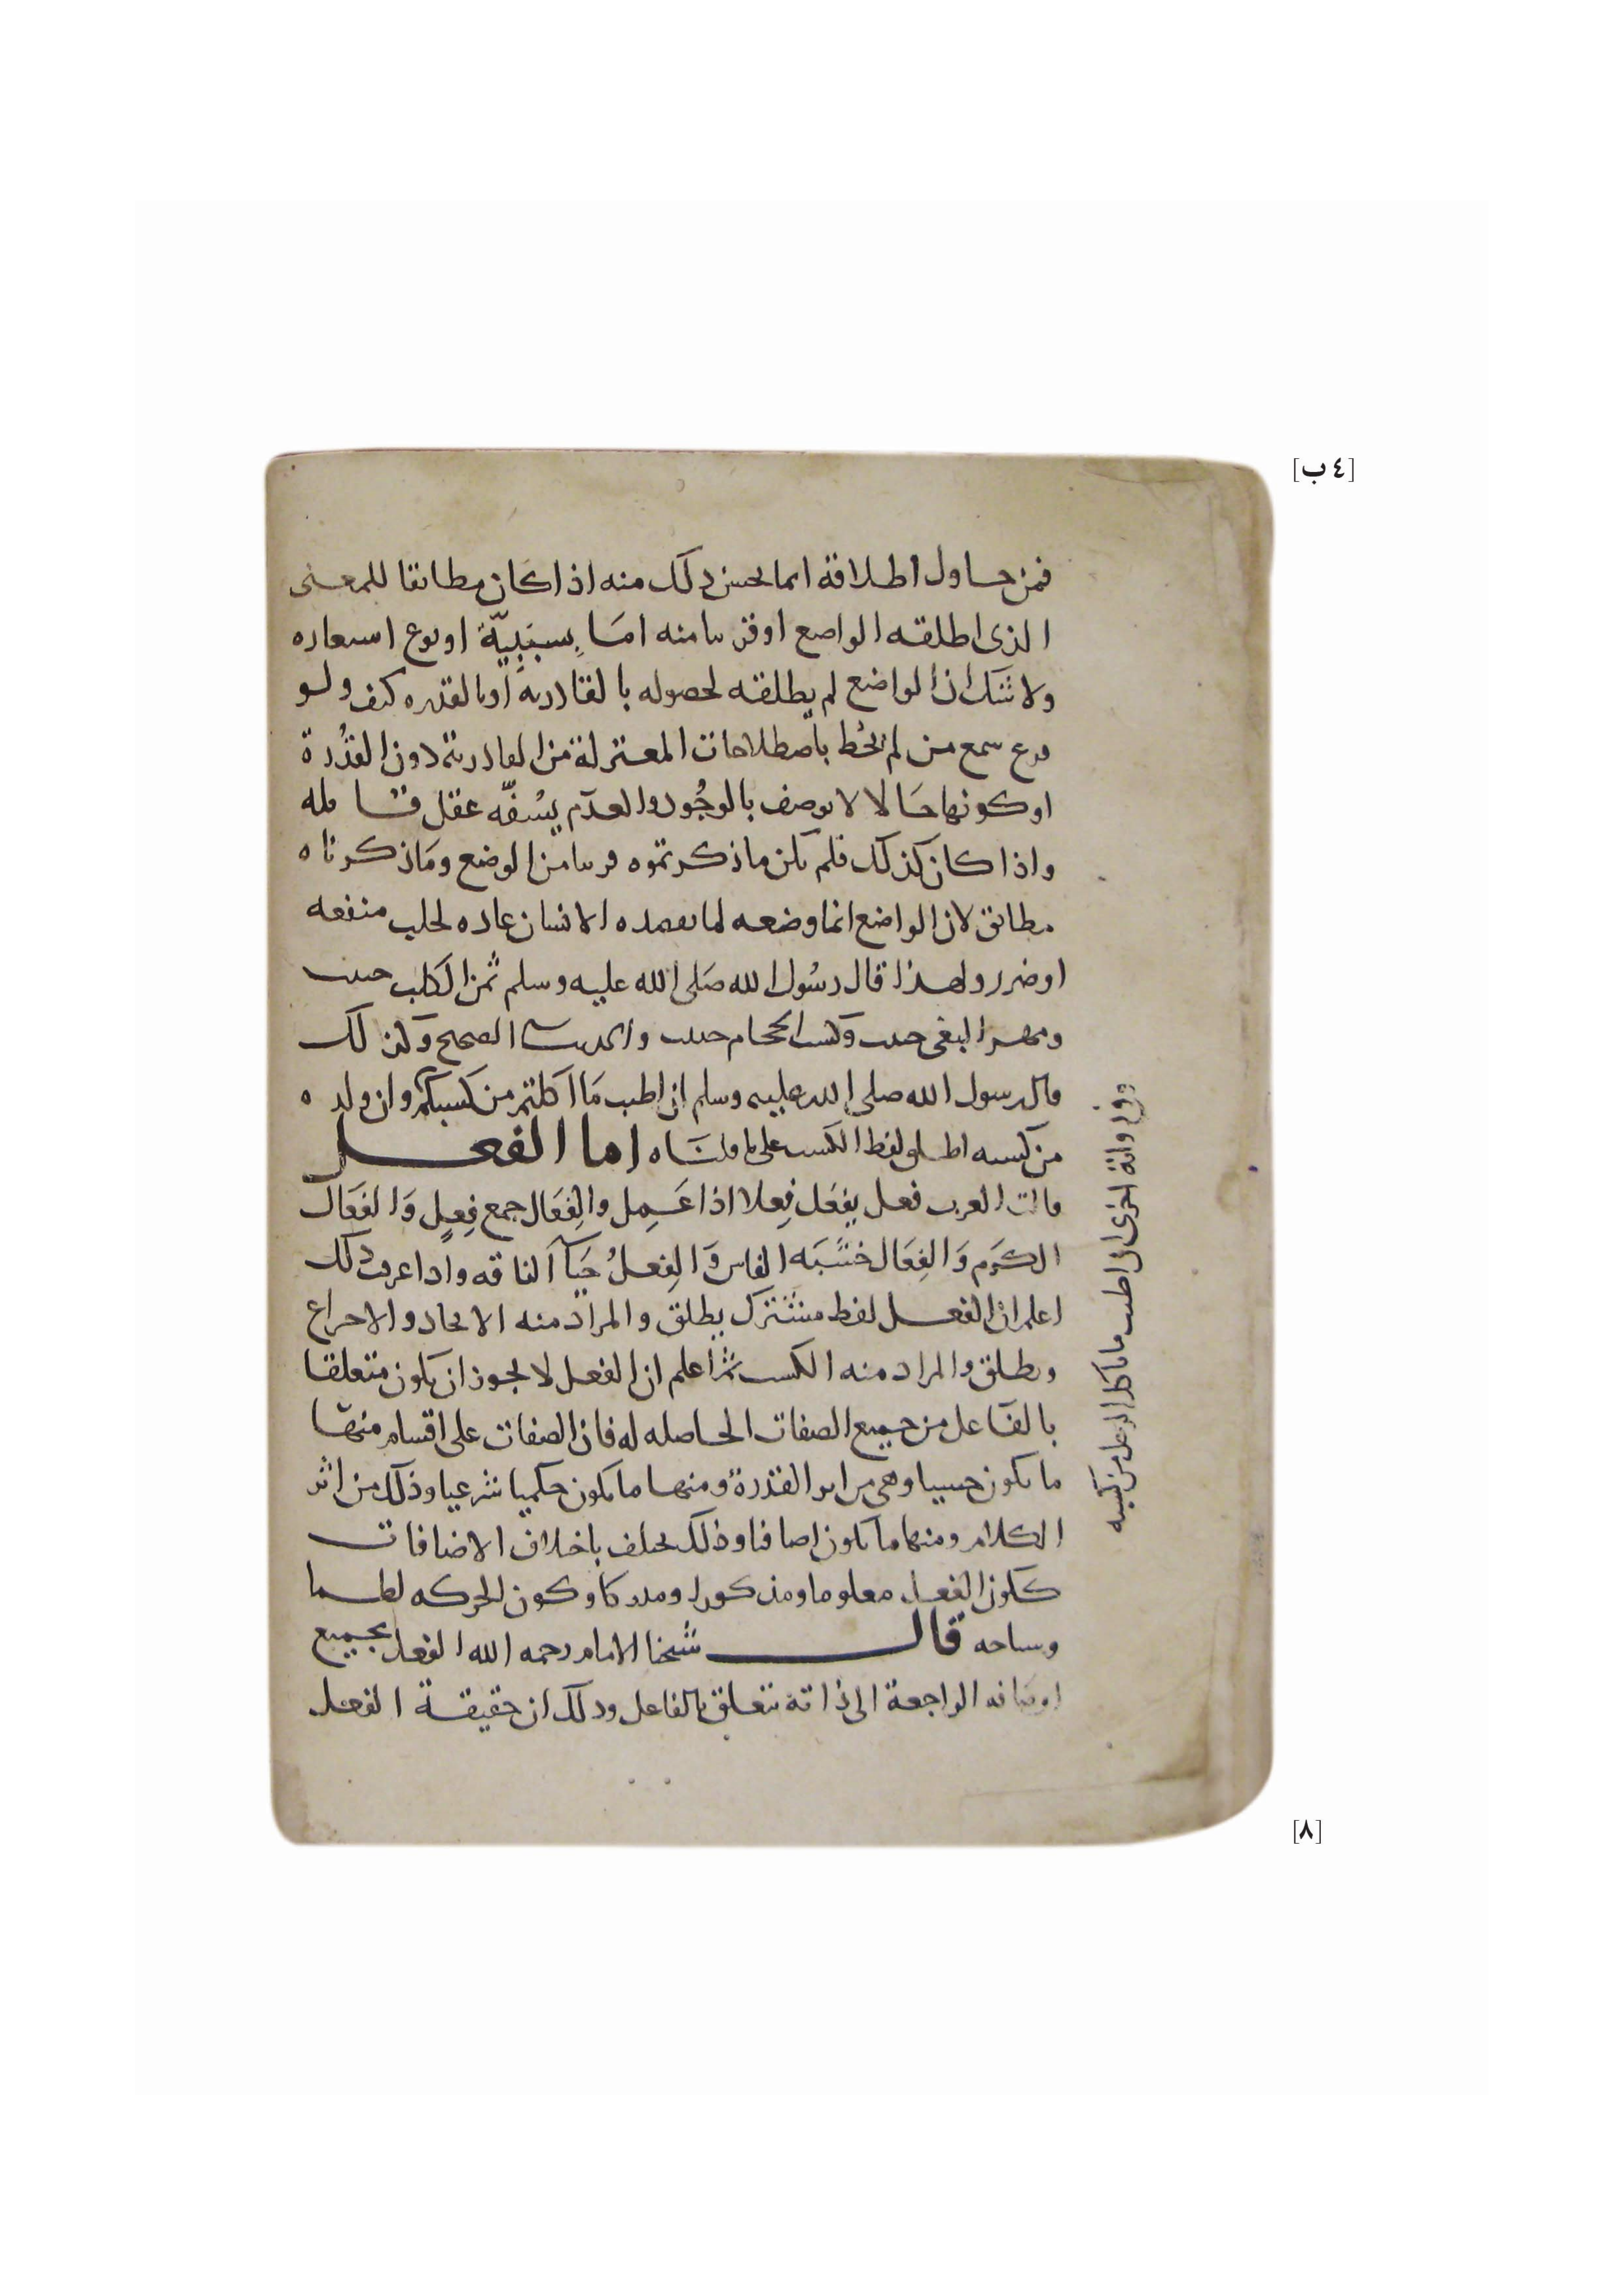 [٤ ب]
فمن حاول اطلاقه انما يحسن ذلك منه اذا كان مطابقا للمعنى
الذى اطلقه الواضع او قريبا منه امَا بِسبَبِيّة او نوع استعاره
ولا شك ان الواضع لم يطلقه لحصوله بالقادريه او بالقدره كيف ولو
قرع سمع من لم يُحط باصطلاحات المعتزلة من القادرية دون القدُرة
او كونها حَالا لا يوصف بالوجُود والعدَم يسُفّه عقل قايله
واذا كان كذلك فلم يكن ما ذكرتموه قريبا من الوضع ومَا ذكرناه
مطابق لان الواضع انما وضعه لما يقصده الانسان عاده لجلب منفعه
او ضرر ولهذا قال رسُول الله صَلى الله عليه وسلم ثمن الكلب خبيث
ومهر البغى خبيث وكسب الحجام خبيث والحديث الصحيح وكذلك
قال رسول الله صلى الله عليه وسلم ان اطيب مَا اكلتم من كسبكم وان ولده
من كسبه اطلق لفظ الكسب على ما قلنَاه اما الفعل
قالت العرب فعل يفعَل فِعلا اذا عَمِل والفِعَال جمع فِعلٍ وَالفَعَال
الكرَم وَالفِعَال خشبَه الفاس وَالفِعلُ حَيَآ الناقه واذا عرفت ذلك
اعلم ان الفعل لفظ مشترك يطلق والمراد منه الايجاد والاختراع
ويطلق والمراد منه الكسب ثم اعلم ان الفعل لا يجوز ان يكون متعلقا
بالفاعل من جميع الصفات الحاصله له فان الصفات على اقسام منها
ما يكون حسيا وهى من اثر القدرة ومنها ما يكون حكميا شرعيا وذلك من اثر
الكلام ومنها ما يكون اضافيا وذلك يختلف باختلاف الاضافات
ككون الفعل معلوما ومذكورا ومدركا وككون الحركه
قال شيخنا الامام رحمه الله الفعل بجميع
اوصافه الراجعة الى ذاته تتعلق بالفاعل وذلك ان حقيقة الفعل
وفى رواية اخرى ان اطيب ما ياكل الرجل من كسبه
[٨]